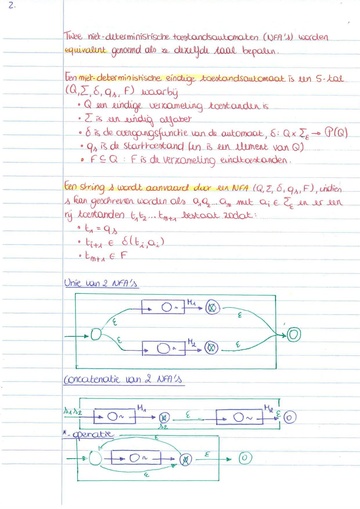 2.
Twee niet-deterministische toestandsautomaten (NFA's) worden
equivalent genoemd als ze dezelfde taal bepalen.
Een niet-deterministische eindige toestandsautomaat is een 5-tal
(Q, Σ, δ, qₛ, F) waarbij
• Q een eindige verzameling toestanden is
• Σ is een eindig alfabet
• δ is de overgangsfunctie van de automaat, δ: Q x Σ_ε → P(Q)
• qₛ is de starttoestand (en is een element van Q)
• F ⊆ Q : F is de verzameling eindtoestanden.
Een string s wordt aanvaard door een NFA (Q, Σ, δ, qₛ, F), indien
s kan geschreven worden als a₁a₂...aₙ met aᵢ ∈ Σ_ε en er een
rij toestanden t₁t₂...tₙ₊₁ bestaat zodat:
• t₁ = qₛ
• tᵢ₊₁ ∈ δ(tᵢ, aᵢ)
• tₙ₊₁ ∈ F
Unie van 2 NFA's
M₁
ε ε
M₂
ε ε
Concatenatie van 2 NFA's
s₁s₂ M₁ ε M₂ ε
*-operatie
ε
ε
ε